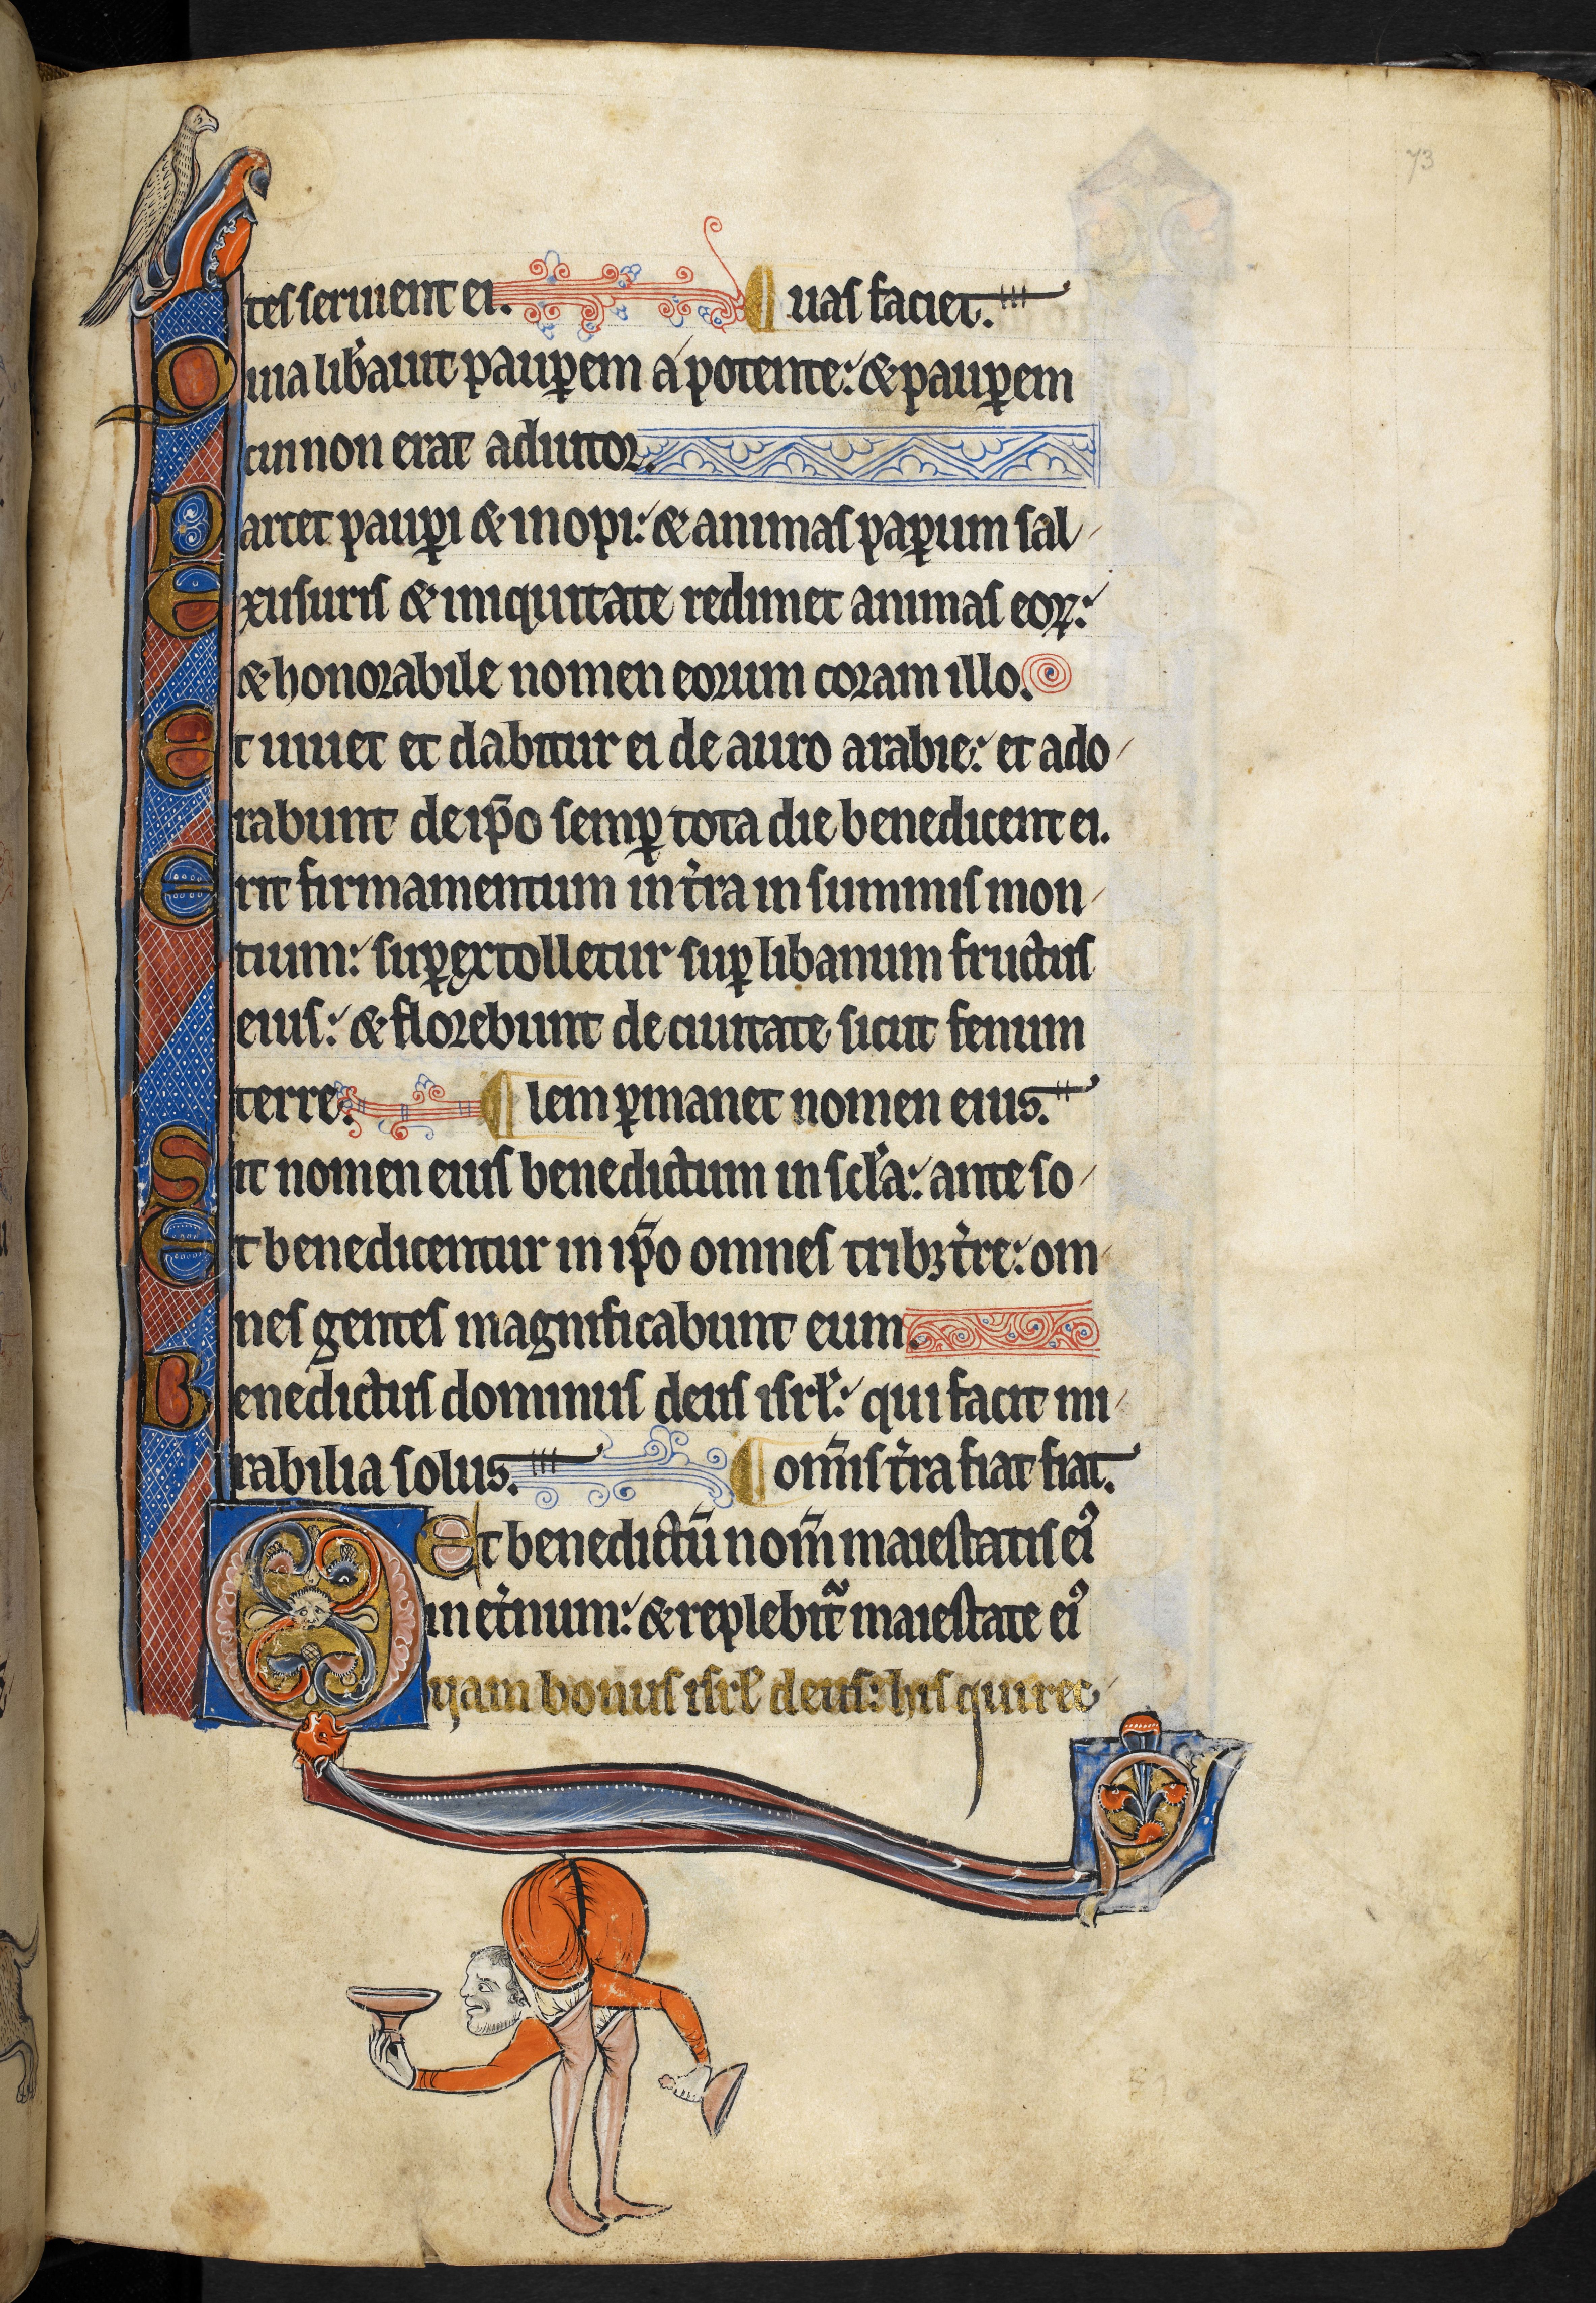 73
tes seruient ei. uas faciet.
Quia lib̾auit paup̱em a potente: & paup̱em
cui non erat adiutor.
Parcet paup̱i & inopi: & animas pap̱um sal
Ex usuris & iniquitate redimet animas eoꝝ:
& honorabile nomen eorum coram illo.
Et uiuet et dabitur ei de auro arabie: et ado
rabunt de ip̄o semp̱ tota die benedicent ei.
Erit firmamentum in t̾ra in summis mon
tium: sup̱extolletur sup̱ libanum fructus
eius: & florebunt de ciuitate sicut fenum
terre. lem p̱manet nomen eius.
Sit nomen eius benedictum in scl̾a: ante so
Et benedicentur in ip̄o omnes tribꝫ t̾re: om
nes gentes magnificabunt eum.
Benedictus dominus deus isrl̾: qui facit mi
rabilia solus. om̄is t̾ra fiat fiat.
Et benedictū nom̄ maiestatis eiꝰ
in et̾num: & replebit̃ maiestate eiꝰ
Quam bonus isrl̾ deus: his qui rec